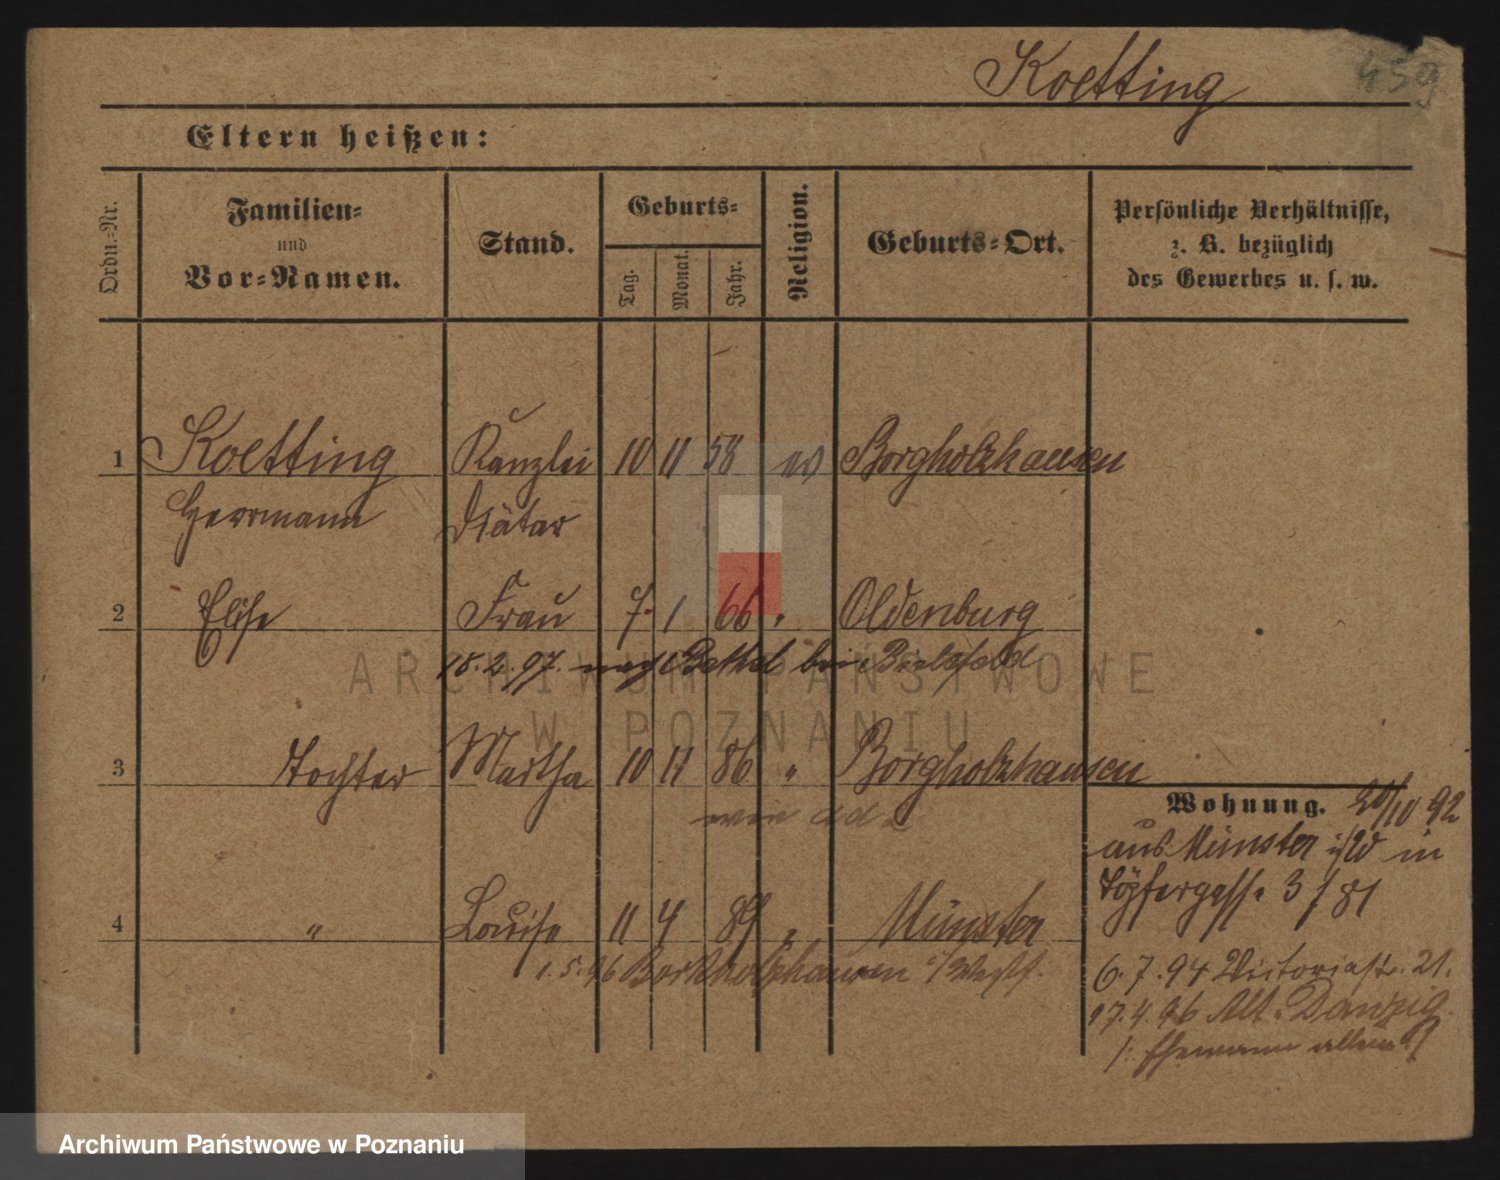 Koetting
459
Eltern heißen:
Ordn.-Nr.
Familien-
und
Vor-Namen.
Stand.
Geburts-
Tag.
Monat.
Jahr.
Religion.
Geburts-Ort.
Persönliche Verhältnisse,
z. B. bezüglich
des Gewerbes u. s. w.
1 Koetting Kanzlei 10 11 58 ev Borgholzhausen
Herrmann Diätar
2 Elise Frau 7. 1 66 " Oldenburg
18.2.97. nach Bethel bei Bielefeld
ARCHIWUM PAŃSTWOWE
W POZNANIU
3 Tochter Martha 10 11 86 " Borgholzhausen
wie ad 2
4 " Louise 11 4 89 " Münster
1.5.96 Borkholzhausen i/Westf.
Wohnung. 20/10 92
aus Münster i/W in
Töpfergasse 3 / 81
6.7.94 Victoriastr. 21.
17.4.96 Alt. Danzig
/: Ehemann allein :/
Archiwum Państwowe w Poznaniu